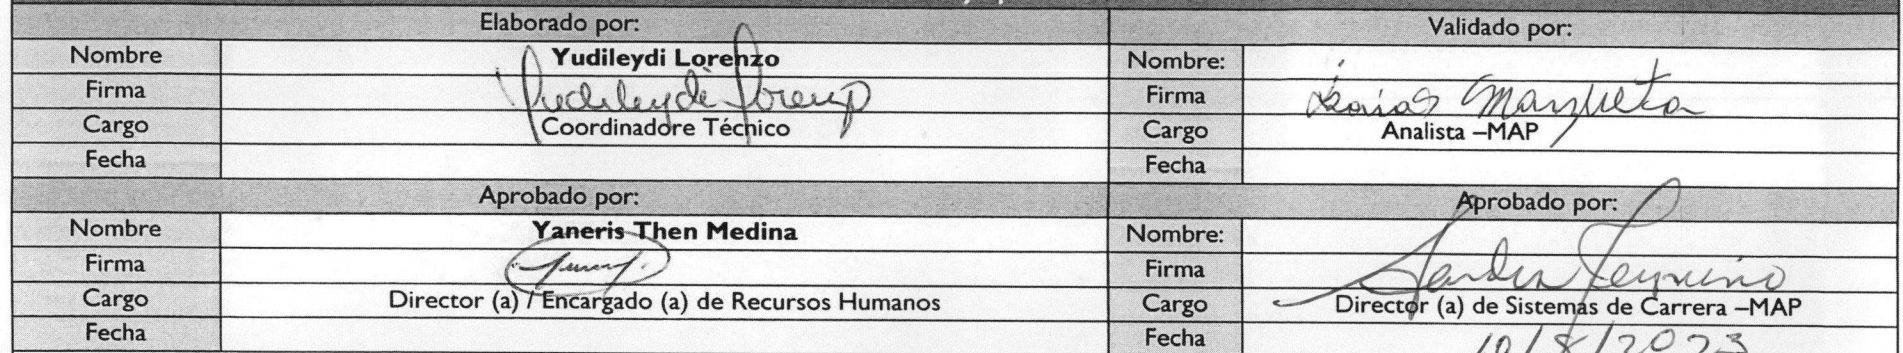 Elaborado por:
Validado por:
Nombre Yudileydi Lorenzo Nombre:
Firma Yudileydi Lorenzo Firma
Cargo Coordinadore Técnico Cargo Analista –MAP
Fecha Fecha
Aprobado por:
Aprobado por:
Nombre Yaneris Then Medina Nombre:
Firma Firma
Cargo Director (a) / Encargado (a) de Recursos Humanos Cargo Director (a) de Sistemas de Carrera –MAP
Fecha Fecha 10/8/2023